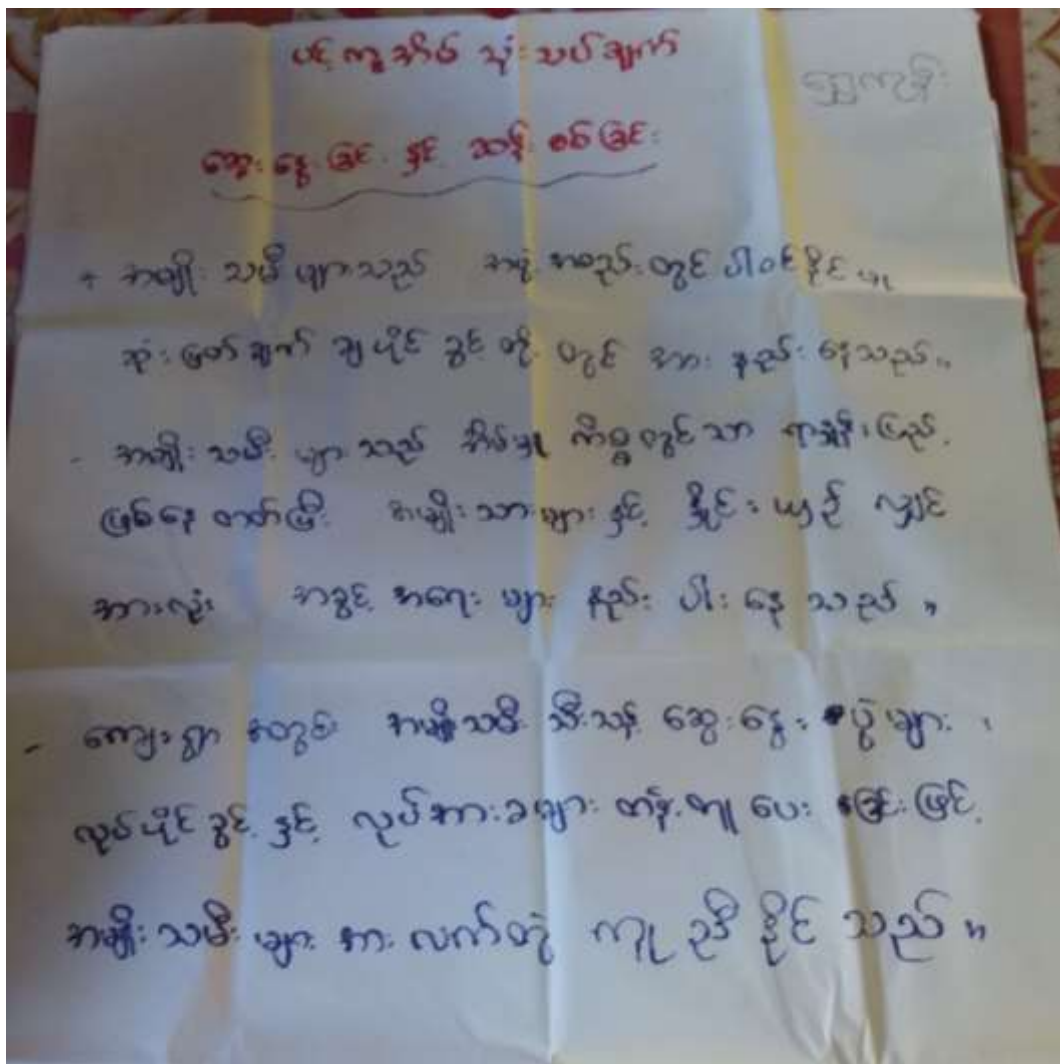 ပင့်ကူအိမ် သုံးသပ်ချက်
ရွှေကျွန်း
ဆွေးနွေးခြင်း နှင့် ဆန်းစစ်ခြင်း
+ အမျိုးသမီးများသည် အဖွဲ့အစည်းတွင် ပါဝင်နိုင်မှု
ဆုံးဖြတ်ချက် ချပိုင်ခွင့်တို့တွင် အားနည်းနေသည်။
- အမျိုးသမီးများသည် အိမ်မှုကိစ္စတွင်သာ ရာနှုန်းပြည့်
ဖြစ်နေတတ်ပြီး အမျိုးသားများနှင့် နှိုင်းယှဉ်လျှင်
အားလုံး အခွင့်အရေးများ နည်းပါးနေသည်။
- ကျေးရွာအတွင်း အမျိုးသမီးသီးသန့် ဆွေးနွေးပွဲများ ၊
လုပ်ပိုင်ခွင့်နှင့် လုပ်အားခများ တန်းတူပေးခြင်းဖြင့်
အမျိုးသမီးများအား လက်တွဲ ကူညီနိုင်သည်။